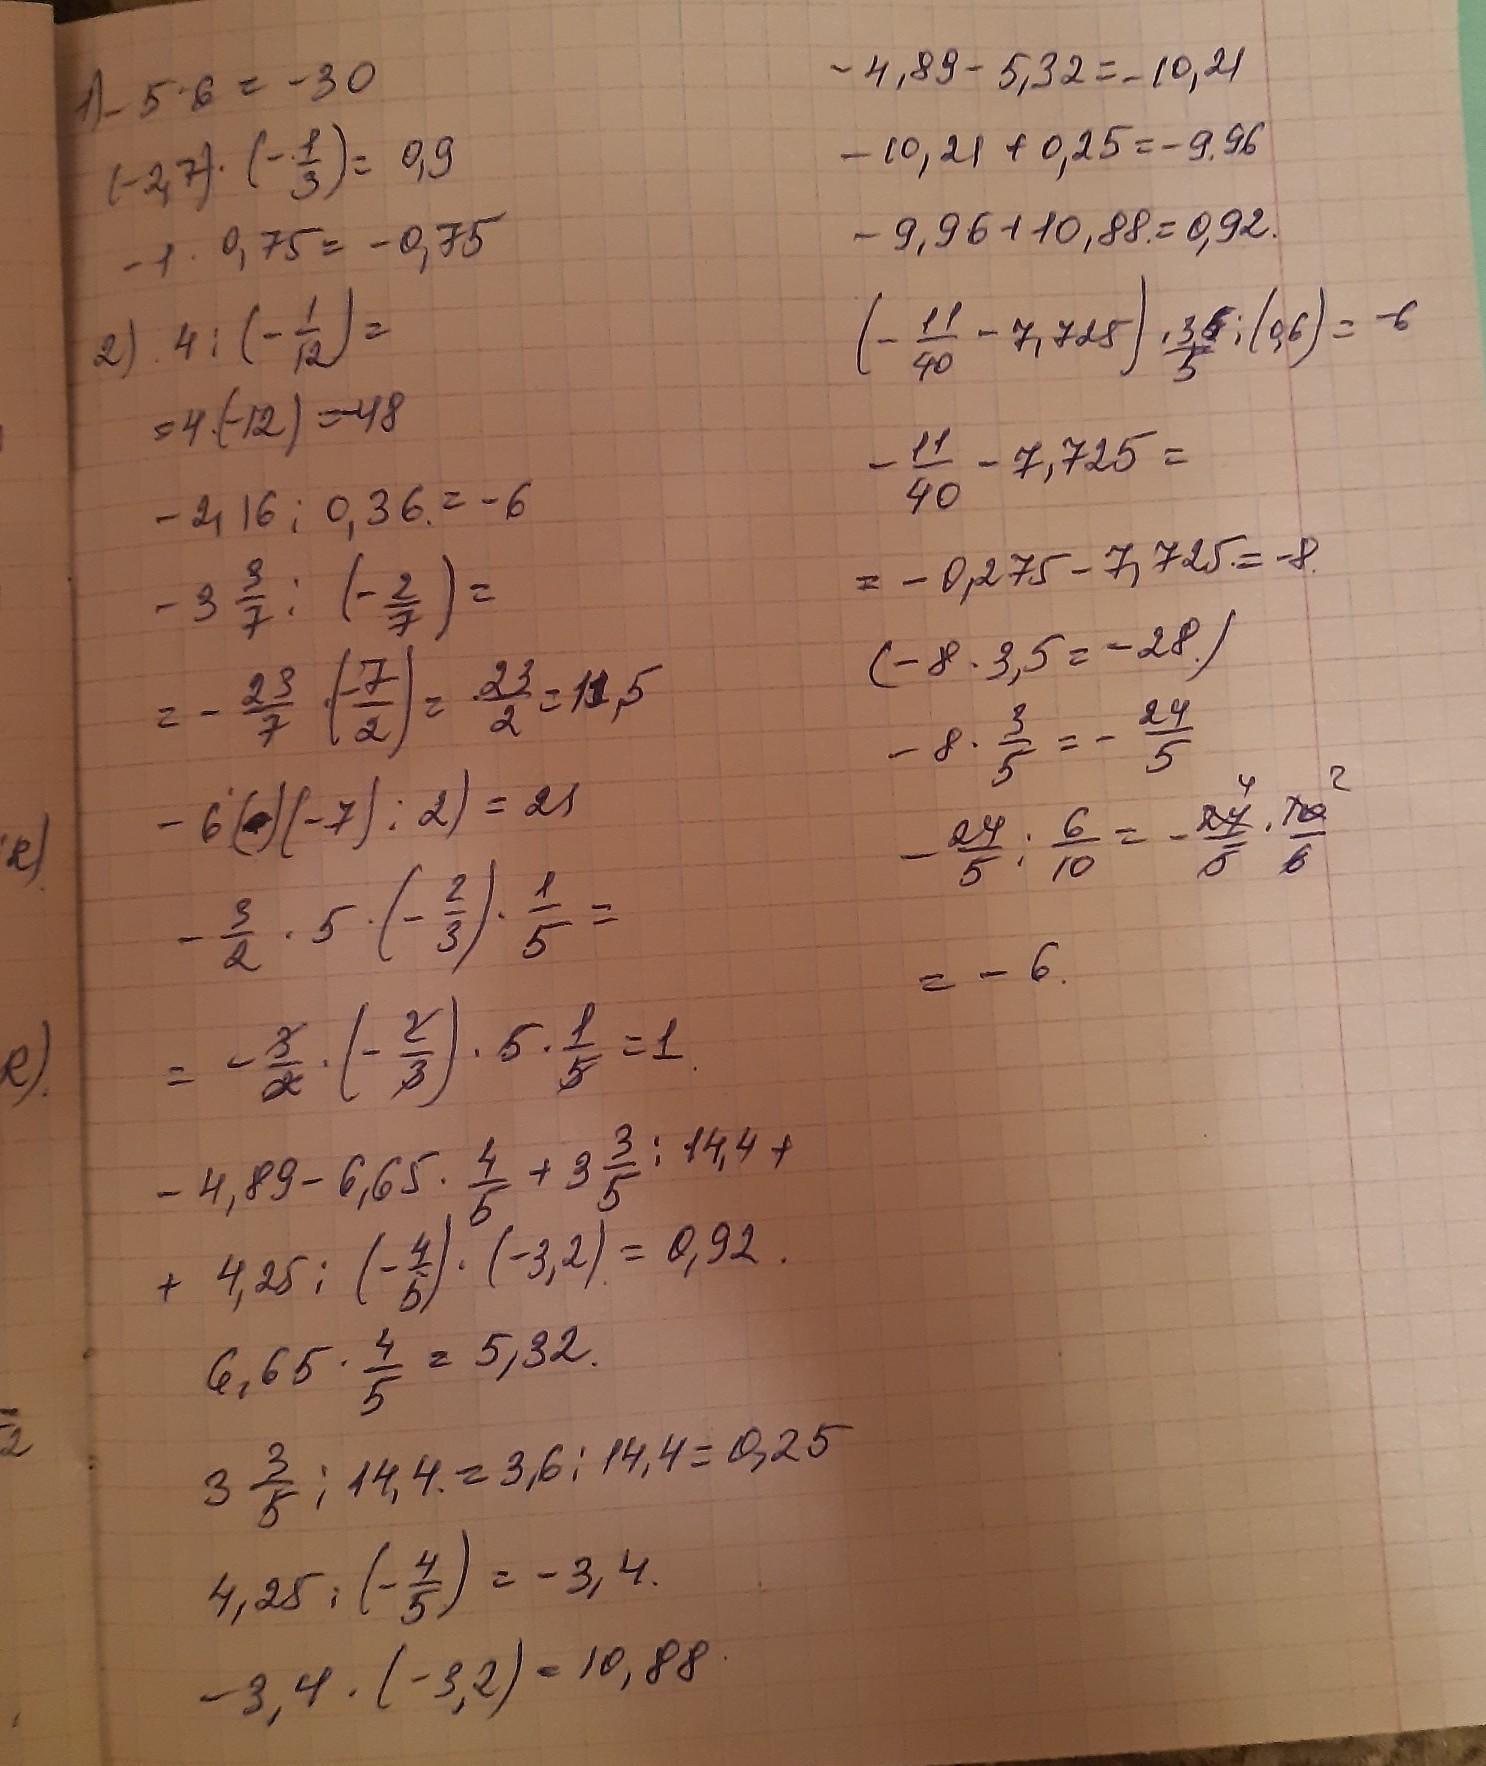 1) -5·6 = -30
(-2,7)·(-1/3) = 0,9
-1·0,75 = -0,75
2) 4:(-1/12) =
=4·(-12) = -48
-2,16:0,36 = -6
-3 3/7 : (-2/7) =
= -23/7·(-7/2) = 23/2 = 11,5
-6·((-7):2) = 21
-3/2·5·(-2/3)·1/5 =
= -3/2·(-2/3)·5·1/5 = 1.
-4,89-6,65·4/5+3 3/5:14,4+
+4,25:(-4/5)·(-3,2) = 0,92.
6,65·4/5 = 5,32.
3 3/5:14,4 = 3,6:14,4 = 0,25
4,25:(-4/5) = -3,4.
-3,4·(-3,2) = 10,88
-4,89-5,32=-10,21
-10,21+0,25=-9.96
-9,96+10,88=0,92.
(-11/40-7,725)·3/5:(0,6) = -6
-11/40-7,725 =
= -0,275-7,725 = -8.
(-8·3,5 = -28.)
-8·3/5 = -24/5
-24/5:6/10 = -24/5·10/6 4 2
= -6.
R)
R)
2